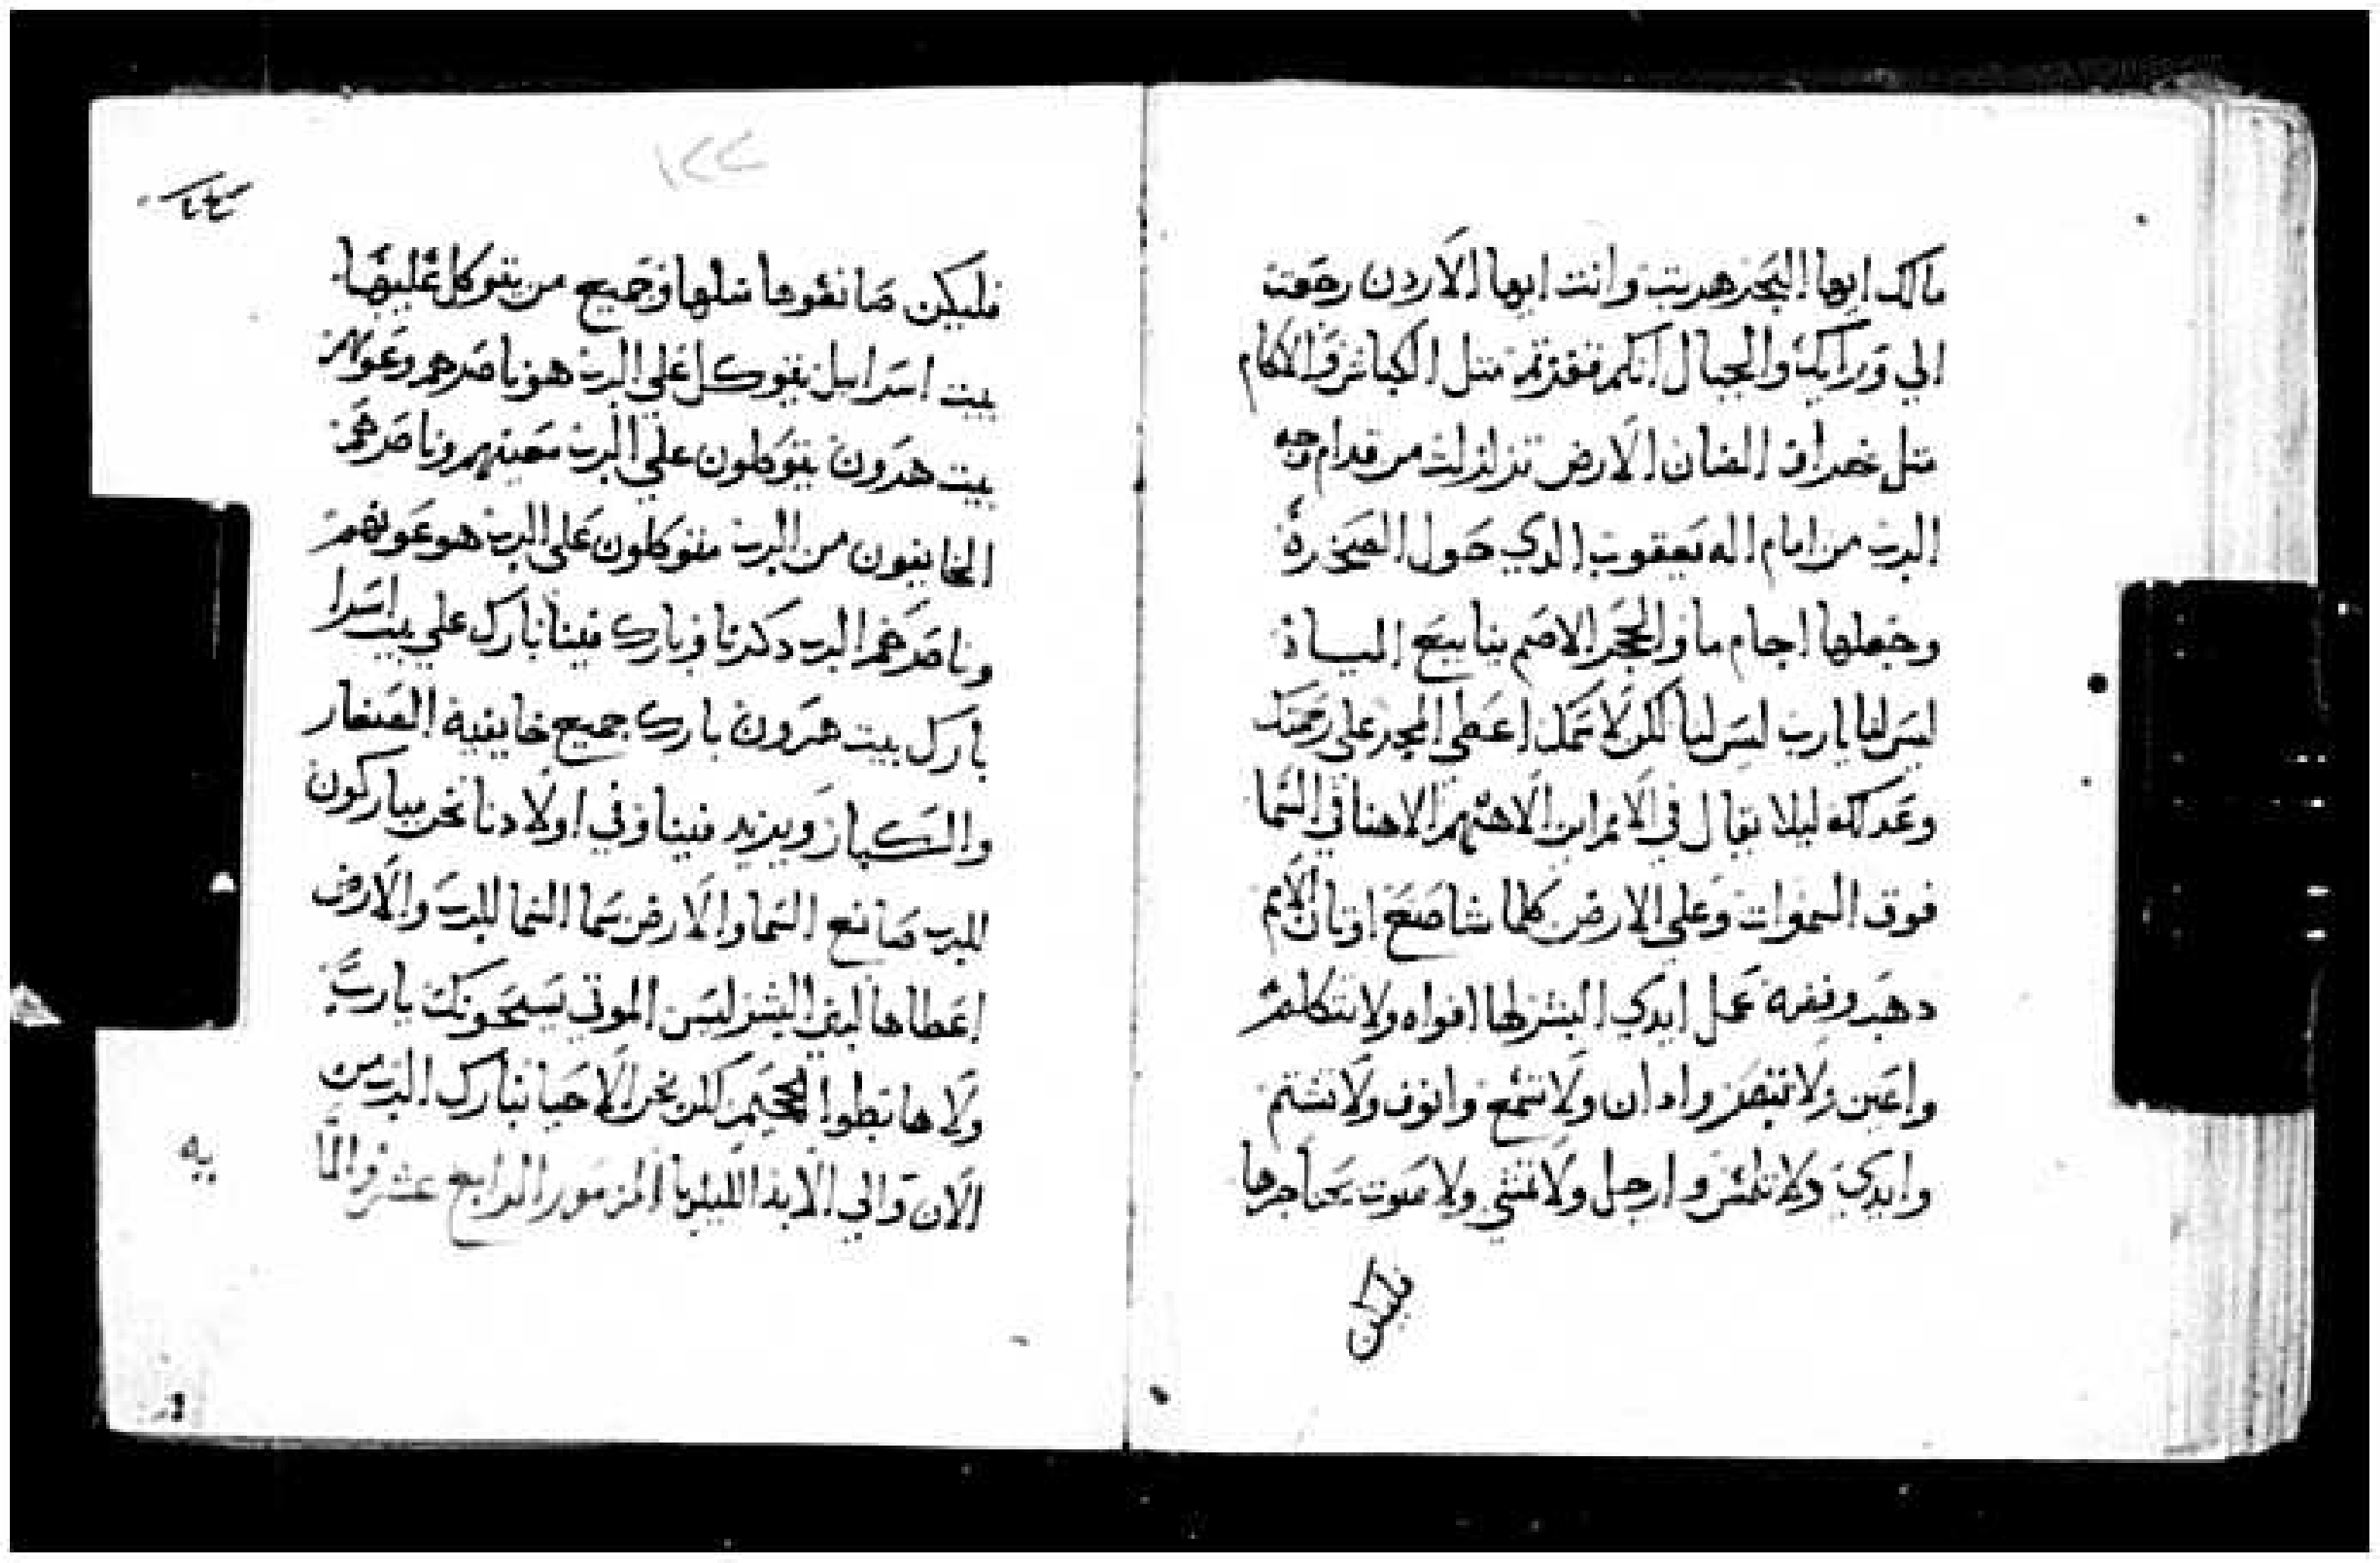 مالك ايها البحر هربت وانت ايها الاردن رجعت
الي ورايك والجبال انكم قفزتم متل الكباش والاكام
متل خراف الضان الارض تزلزلت من قدام وجه
الرب من امام اله يعقوب الدي حول الصخرة
وجعلها اجام ما والحجر الاصم ينابيع المياة
ليس لنا يارب ليس لنا لكن لاسمك اعطي المجد علي رحمتك
وعدلك ليلا يقال في الامم اين الاههم الاهنا في السما
فوق السموات وعلي الارض كلما شا صنع اوتان الامم
دهب وفضه عمل ايدي البشر لها افواه ولا تتكلم
واعين ولا تبصر وادان ولا تسمع وانوف ولا تشتم
وايدي ولا تلمس وارجل ولا تمشي ولا صوت بحناجرها
فليكن
١٢٢
فليكن صانعوها متلها وجميع من يتوكل عليها
بيت اسراييل يتوكل علي الرب هو ناصرهم وعونهم
بيت هرون يتوكلون علي الرب معينهم وناصرهم
الخايفون من الرب متوكلون علي الرب هو عونهم
وناصرهم الرب دكرنا وبارك فينا بارك علي بيت اسرا
بارك بيت هرون بارك جميع خايفية الصغار
والكبار ويزيد فينا وفي اولادنا نحن مباركون
للرب صانع السما والارض سما السما للرب والارض
اعطاها لبني البشر ليس الموتي يسبحونك يارب
ولا هابطوا الجحيم لكن نحن الاحيا نبارك الرب من
الان والي الابد الليلويا المزمور الرابع عشر والما
يه